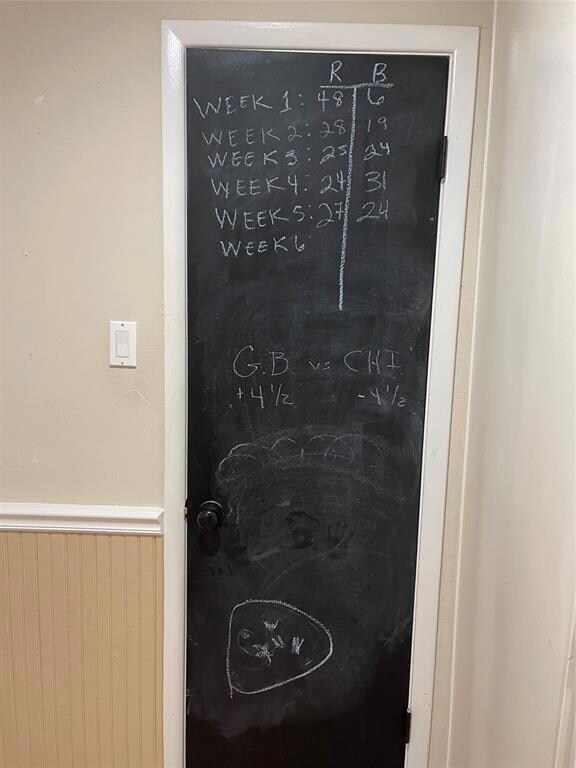 R B
WEEK 1: 48 6
WEEK 2: 28 19
WEEK 3: 25 24
WEEK 4: 24 31
WEEK 5: 27 24
WEEK 6
G.B vs CHI
+4 1/2 -4 1/2